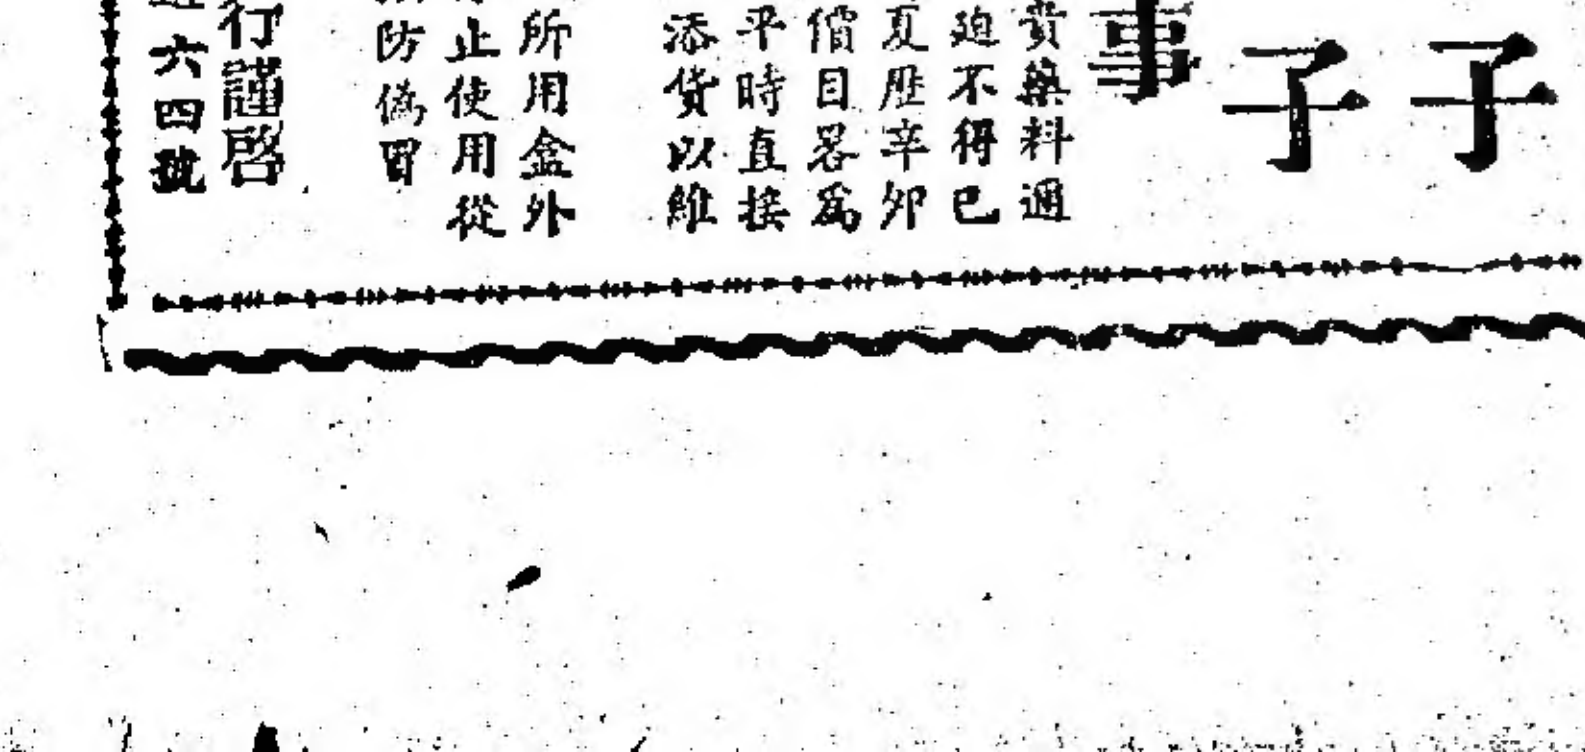 子
子
事
貴藥料通
迫不得已
夏歷辛卯
償目畧爲
平時直接
添貨以維
所用盒外
止使用從
防僞冒
行謹啓
六四號